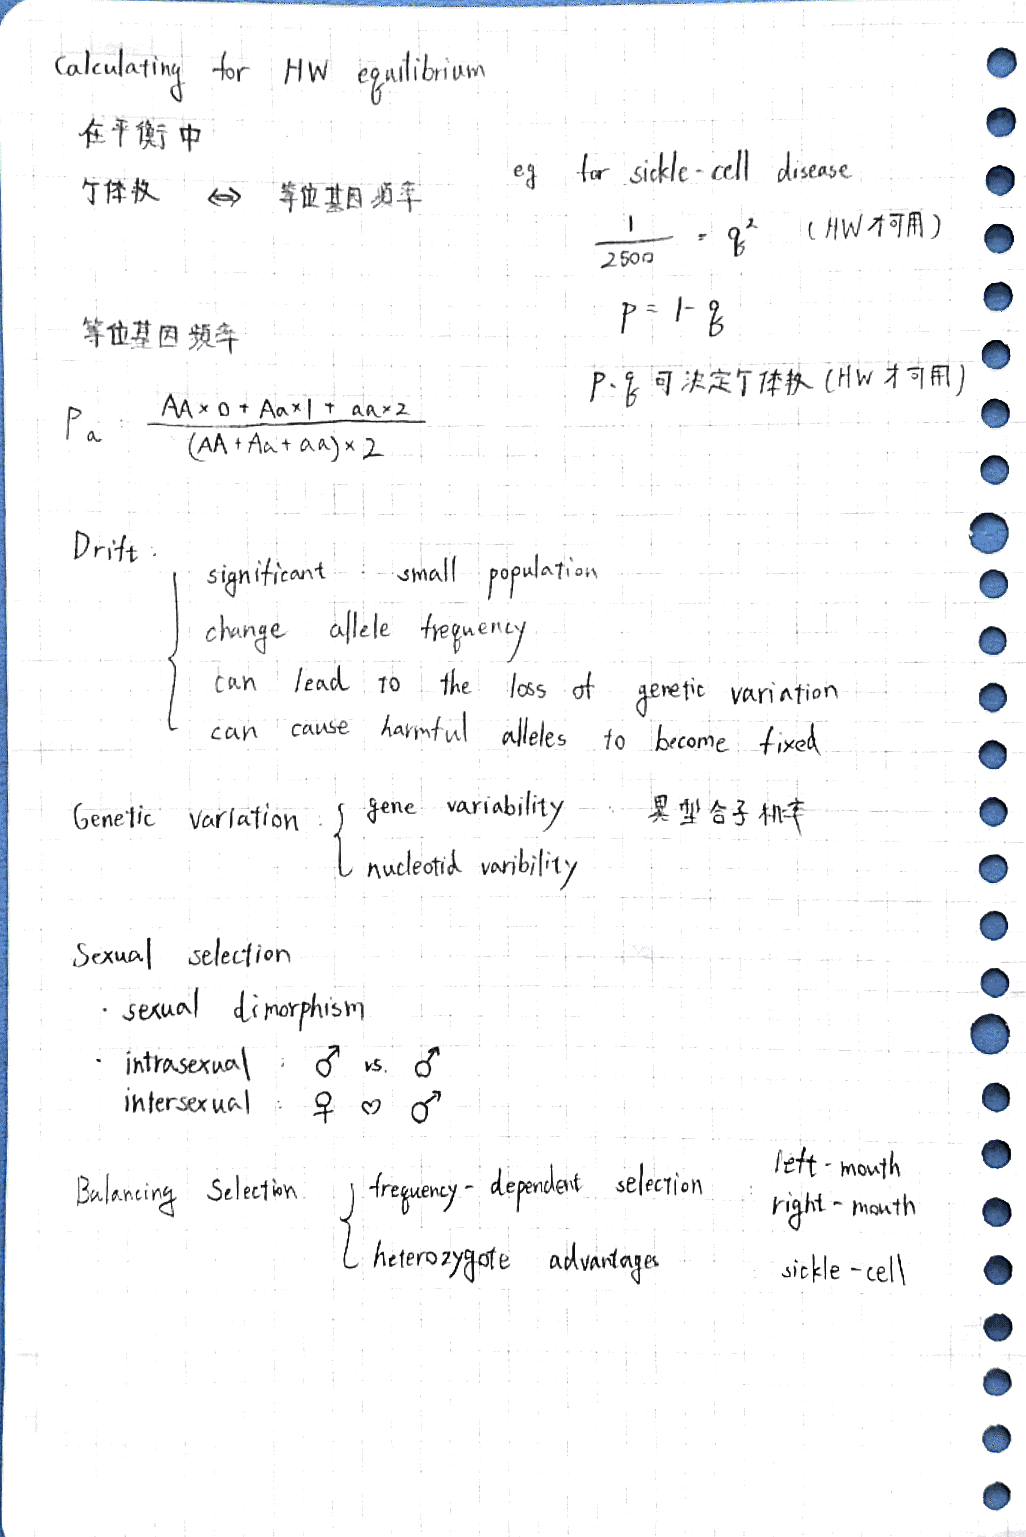 Calculating for HW equilibrium
在平衡中
个体数 ⇔ 等位基因频率
eg for sickle-cell disease
1/2500 = q² (HW才可用)
p = 1 - q
p、q 可决定个体数 (HW才可用)
等位基因频率
Pa : (AA×0 + Aa×1 + aa×2) / ((AA + Aa + aa) × 2)
Drift :
significant : small population
change allele frequency
can lead to the loss of genetic variation
can cause harmful alleles to become fixed
Genetic variation : { gene variability : 异型合子机率
nucleotid varibility
Sexual selection
· sexual dimorphism
· intrasexual : ♂ vs. ♂
intersexual : ♀ ♡ ♂
Balancing Selection { frequency-dependent selection : left-mouth
right-mouth
heterozygote advantages sickle-cell